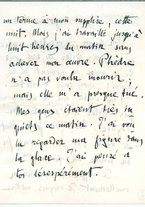 un terme à mon supplice, cette
nuit. Mais j'ai travaillé jusqu'à
huit heures du matin sans
achever mon œuvre. Phèdre
n'a pas voulu mourir,
mais elle m'a presque tué.
Mes gens étaient très in
quiets ce matin. J'ai vou
lu regarder ma figure dans
la glace. J'ai pensé à
ton désespérément.